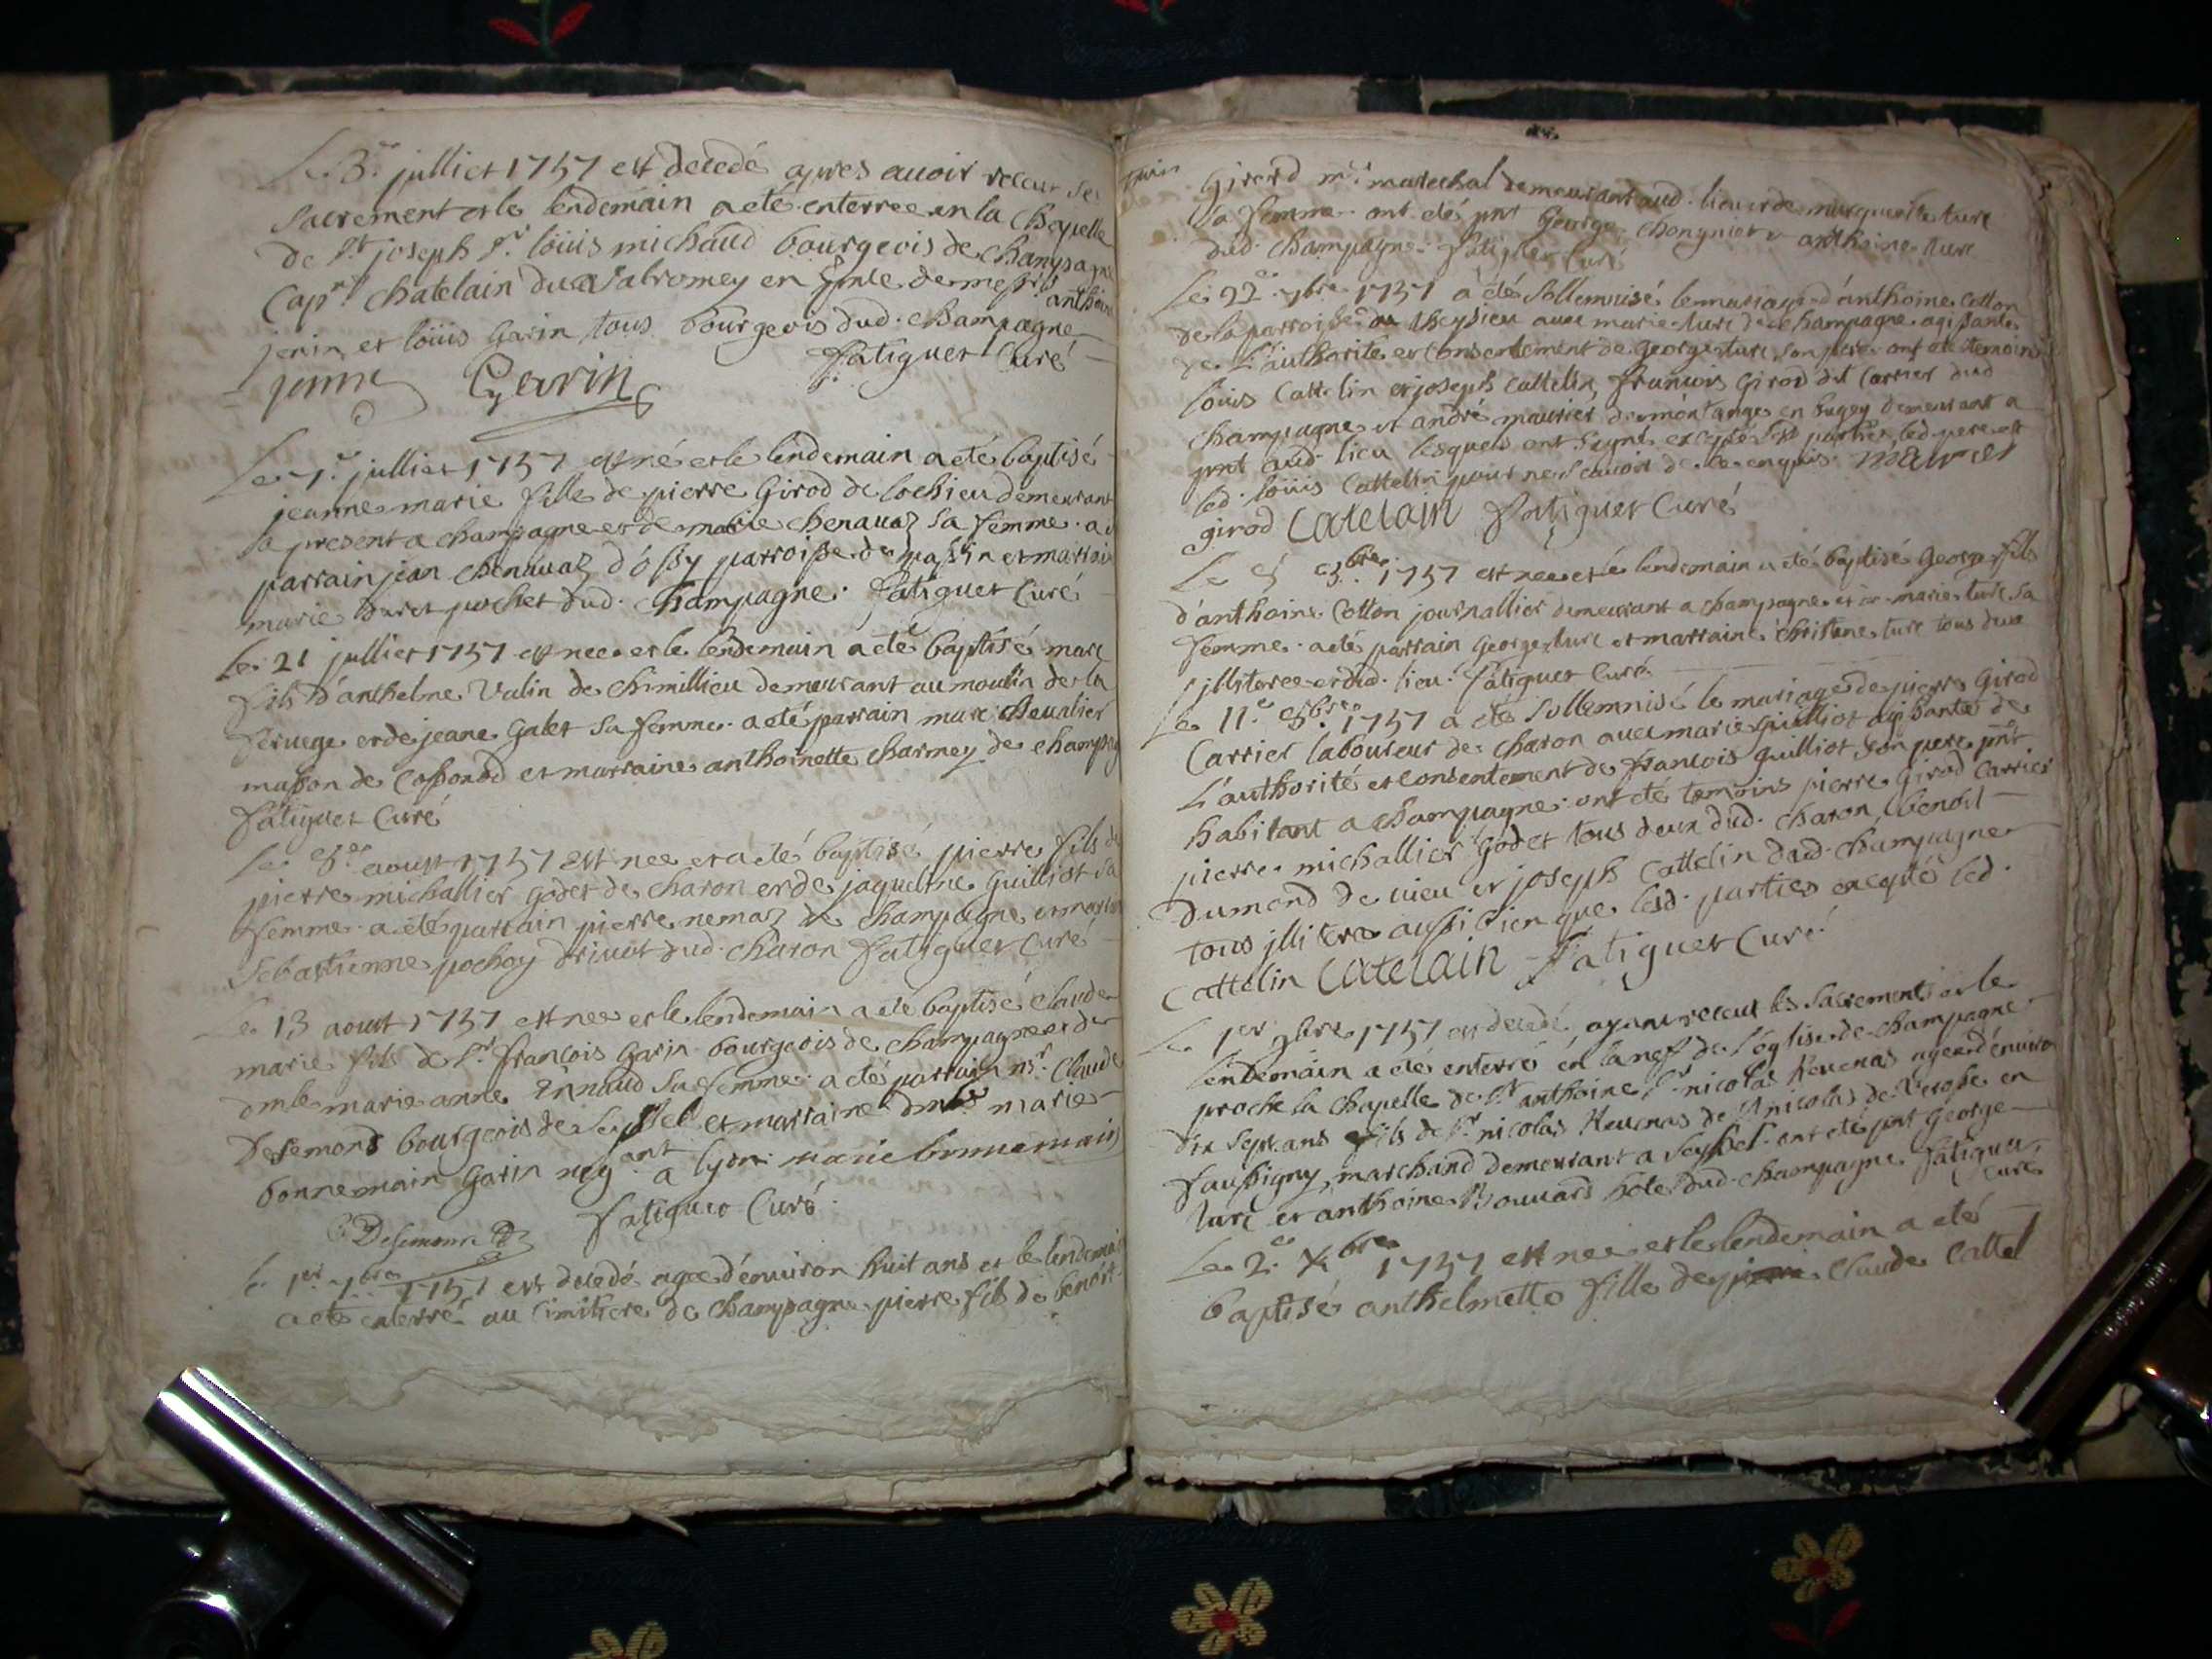 Le 3.e julliet 1757 est decedé apres avoir receu ses
sacrement et le lendemain a eté enterree en la chapelle
de st joseph sr. loüis michaud bourgeois de champagne
capne. chatelain du valromey en pnce de messrs anthoine
jenin et loüis Garin tous bourgeois dud. champagne
jenin Garin fatiguet Curé
Le julliet 1757 est né et le lendemain a eté baptisé
jeanne marie fille de pierre Girod de lochieu demeurant
a present a champagne et de marie chenavaz sa femme. a eté
parrain jean chenavaz d'ossy parroisse de passin et marraine
marie pochet dud. champagne. fatiguet Curé
le 21 julliet 1757 est nee et le lendemain a eté baptisé marc
fils d'anthelme Valin de chimillieu demeurant au moulin de la
feruege et de jeane Galet sa femme. a eté parrain marc chevalier
masson de et marraine anthoinette charmey de champagne
fatiguet Curé
Le aoust 1757 est nee et a eté baptisé pierre fils de
pierre michallier godet de charon et de jaqueline Guilliot sa
femme. a eté parrain pierre nemaz de champagne et marraine
sebastienne pochoy drivot dud. charon fatiguet Curé
Le 13 aoust 1757 est nee et le lendemain a eté baptisé claude
marie fils de sr. françois Garin bourgeois de champagne et de
dmle marie anne sa femme. a eté parrain mr. Claude
Desemond bourgeois de Seyssel et marraine dmle marie
bonnemain Garin neg.ant a lyon marie bonnemain
Desemond fatiguet Curé
le 1er 7bre 1757 est decedé agee d'environ huit ans et le lendemain
a eté enterré au cimitiere de champagne pierre fils de benoit
Girord me. marechal demeurant aud. lieu et de marguerite turc
sa femme. ont eté pnt George chongniet et anthoine turc
dud. champagne. fatiguet Curé
Le 22.e 7bre 1757 a eté sollemnisé le mariage d'anthoine cotton
de la parroisse de theysieu avec marie turc de champagne agissante
de l'authorité et consentement de george turc son pere ont eté temoins
loüis Cattelin et joseph cattelin, francois Girod dit Carrier dud
champagne et andré maurier de en bugey demeurant a
pnt aud. lieu lesquels ont signé excepté les parties led. pere et
led. loüis Cattelin pour ne scavoir de ce enquis maurier
girod Catelain fatiguet Curé
Le 8bre 1757 est nee et le lendemain a eté baptisé George fils
d'anthoine Cotton journallier demeurant a champagne et de marie turc sa
femme. a eté parrain George turc et marraine christine turc tous deux
jlliteree et dud. lieu. fatiguet Curé
Le 11.e 8bre 1757 a eté sollemnisé le mariage de pierre Girod
Carrier laboureur de charon avec marie guilliot agissante de
l'authorité et consentement de françois guilliot son pere pnt
habitant a champagne. ont eté temoins pierre Girod Carrier
pierre michallier godet tous deux dud. charon, benoit
dumond de vieu et joseph Cattelin dud. champagne
tous jlliteres aussi bien que lesd. parties excepté led.
Cattelin Catelain fatiguet Curé
Le 1er 9bre 1757 est decedé ayant receut les sacrements et le
lendemain a eté enterré en la nef de l'église de champagne
proche la chapelle de st anthoine sr. nicolas agee d'environ
dix sept ans fils de sr. nicolas de st nicolas de Verosse en
faussigny, marchand demeurant a Seyssel. ont eté pnt George
turc et anthoine Bouvard hôte dud. champagne fatiguet
Curé
Le 2.e Xbre 1757 est nee et le lendemain a eté
baptisé anthelmette fille de Claude Cattel